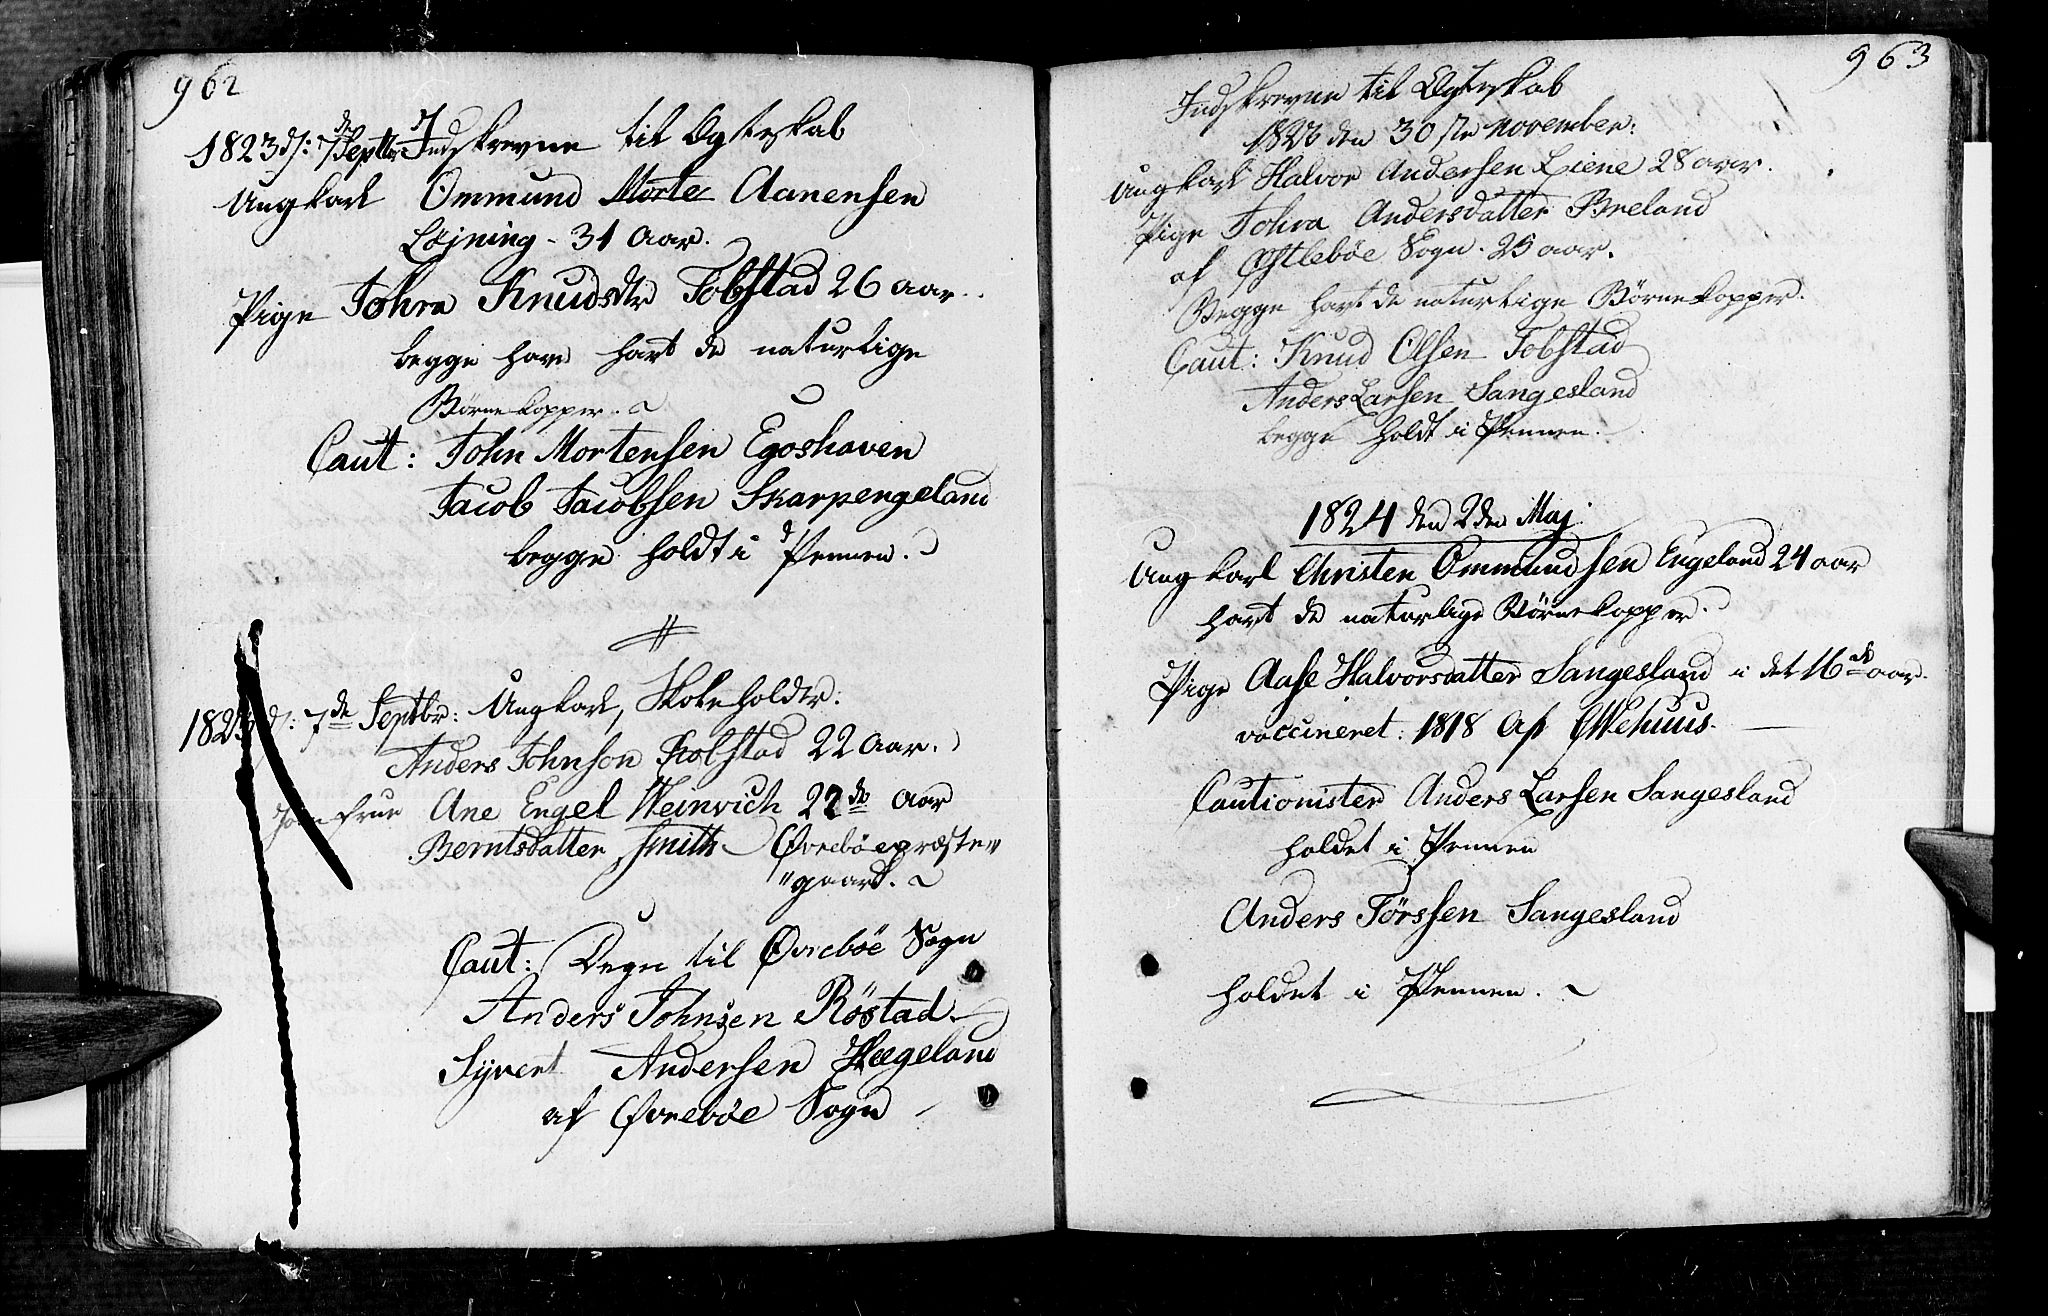 962
1823 d: 7de Septbr Indskrevne til Ægteskab
Ungkarl Ommund Morte Aanensen
Løjning - 31 Aar.
Pige Johra Knudsdtr Fobstad 26 aar.
begge have havt de naturlige
Børnekopper.
Caut: John Mortensen Egoshaven
Jacob Jacobsen Skarpengeland
begge holdt i Pennen.
1823 d: 7de Septbr: Ungkarl, Skoleholdr:
Anders Johnson 22 Aar.
Jomfrue Ane Engel Weinvich 22de Aar
Berntsdatter Smith Øvrebøe præste"
"gaard.
Caut: Degn til Øvrebøe Sogn
Anders Johnsen Röstad
Syvert Andersen Hægeland
af Øvrebøe Sogn
963
Indskrevne til Ægteskab
1823 den 30ste November:
Ungkarl Halvor Andersen Liene 28 aar.
Pige Johra Andersdatter Breland
af Østlebøe Sogn. 25 aar.
Begge havt de naturlige Børnekopper.
Caut: Knud Olsen Fobstad
Anders Larsen Sangesland
begge holdt i Pennen.
1824 den 2den Maj:
Ungkarl Christen Ommundsen Engeland 24 aar
havt de naturlige Børnekopper.
Pige Aase Halvorsdatter Sangesland i det 16de aar.
vaccineret: 1818 af Wehuus.
Cautionister Anders Larsen Sangesland
holdet i Pennen
Anders Törssen Sangesland
holdet i Pennen.